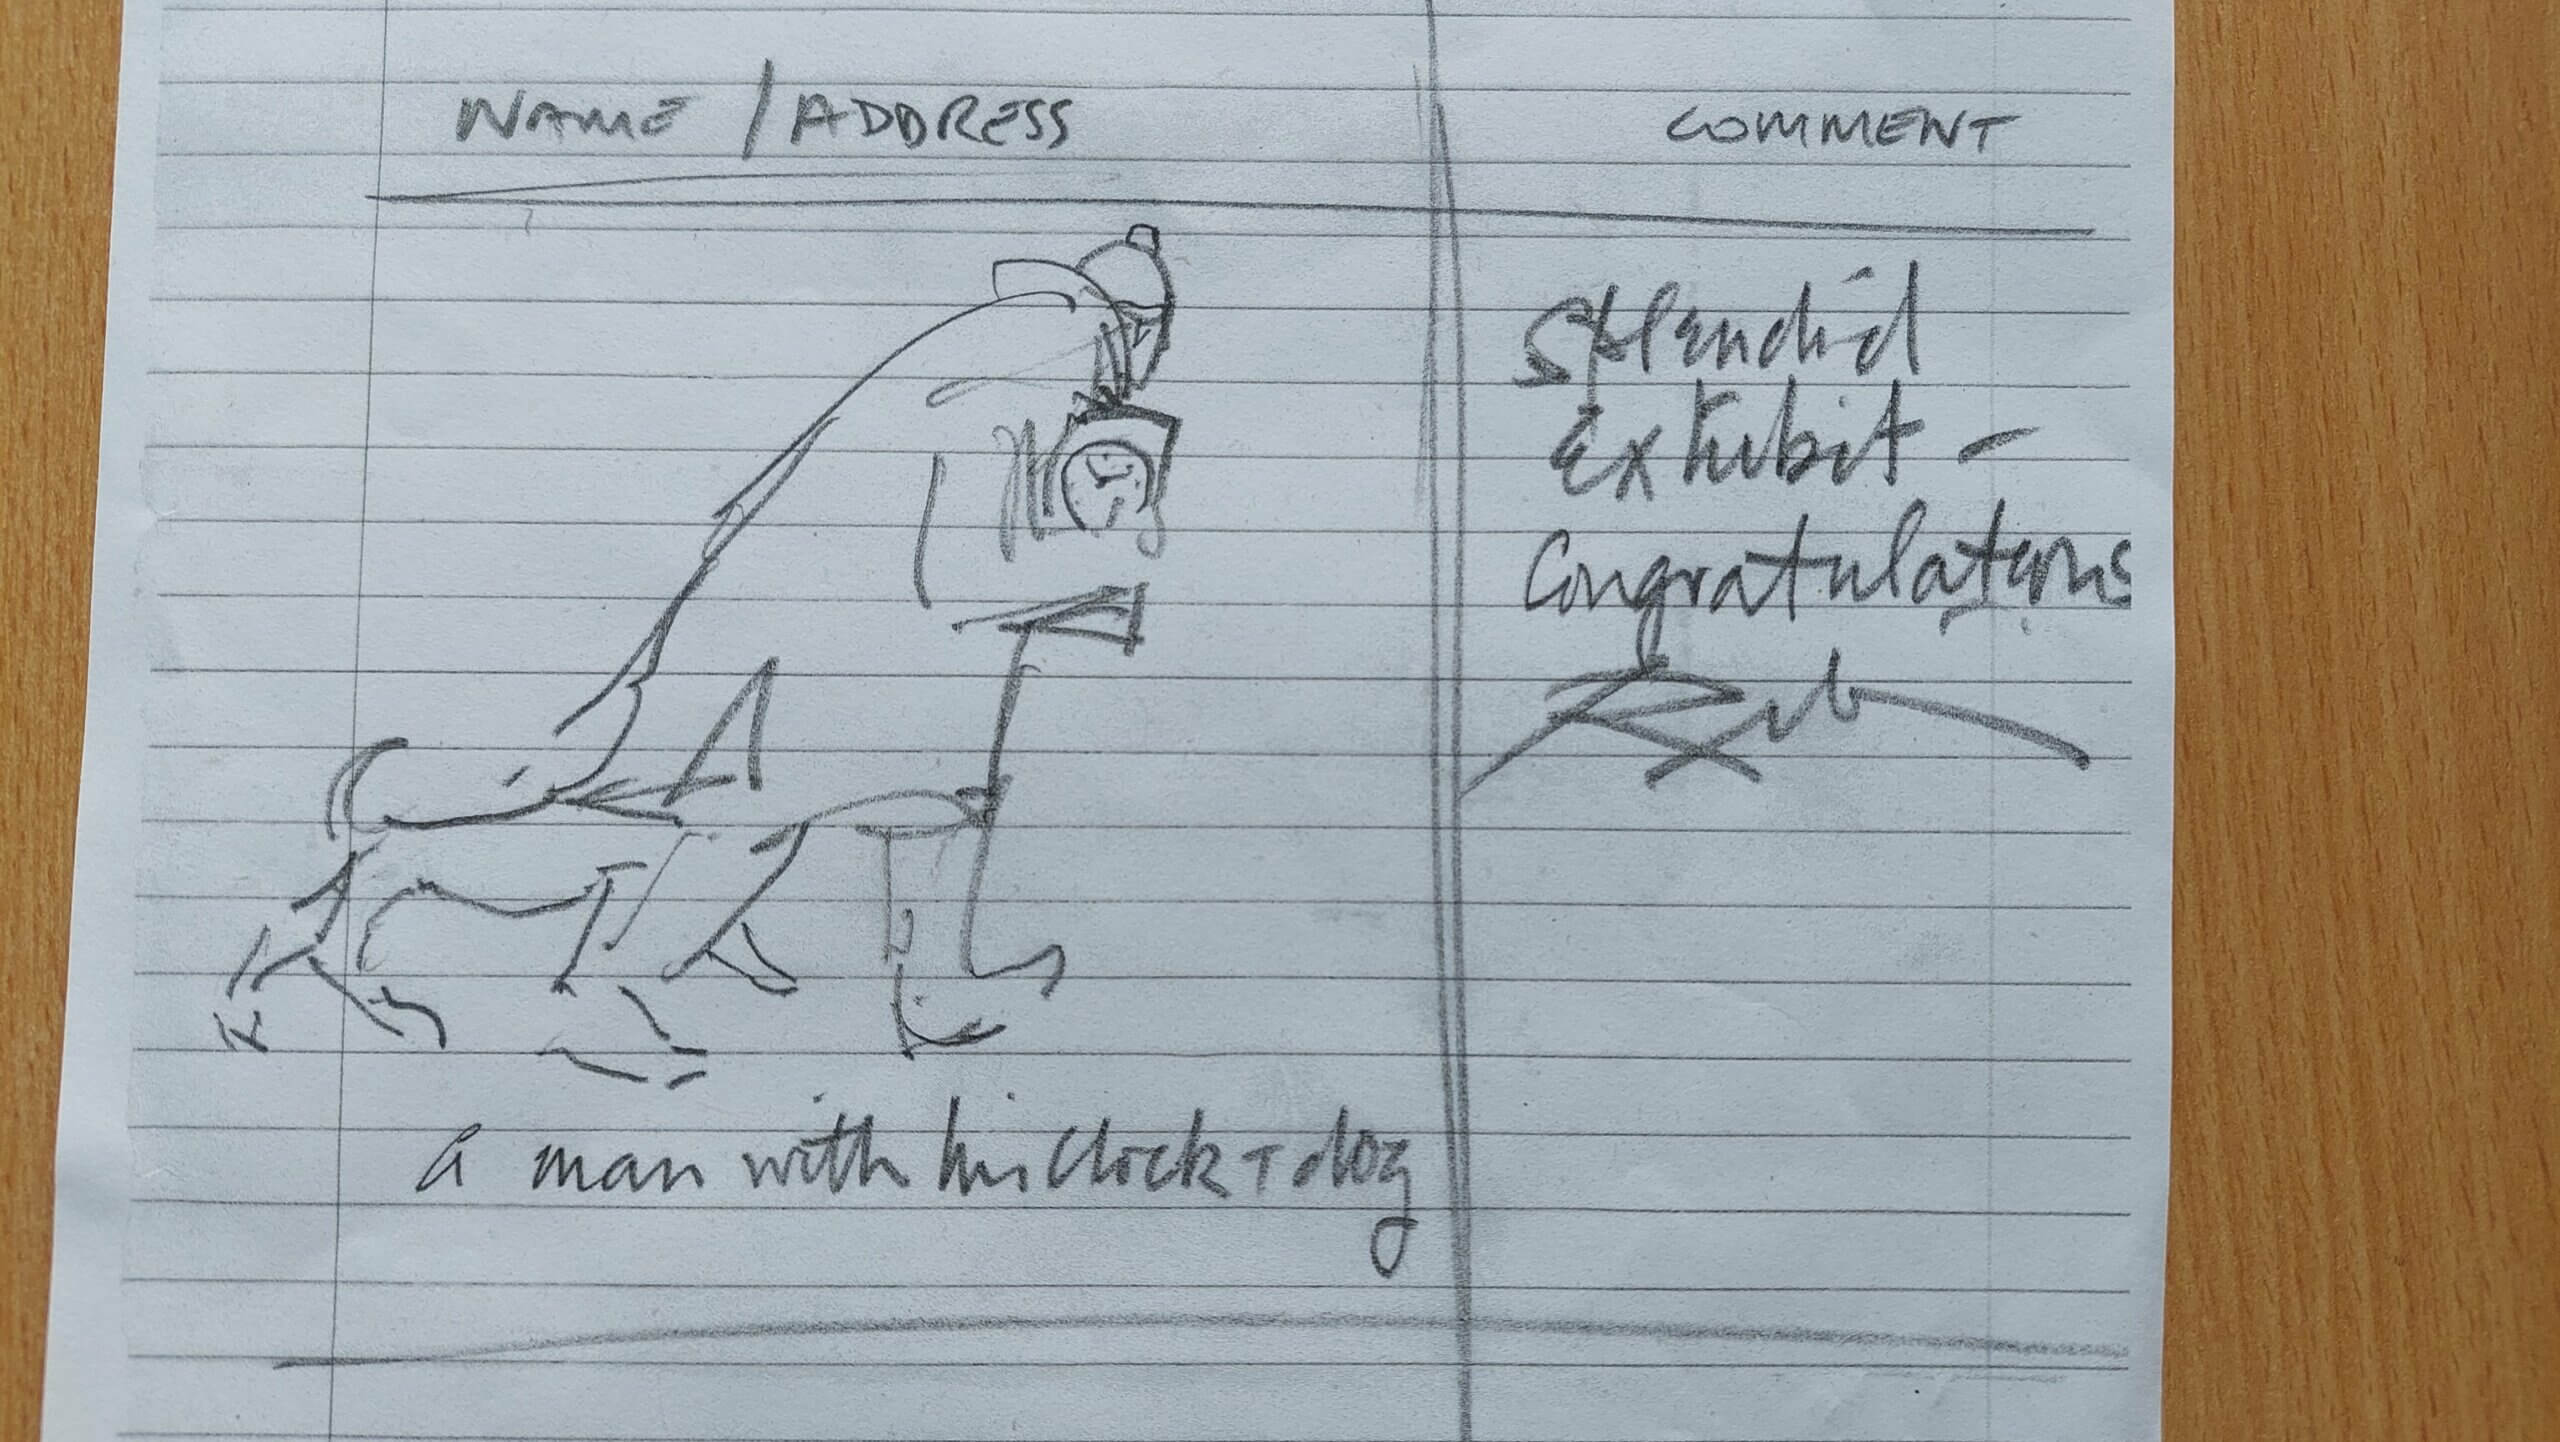 NAME / ADDRESS
COMMENT
Splendid
Exhibit -
Congratulations
a man with his clock + dog